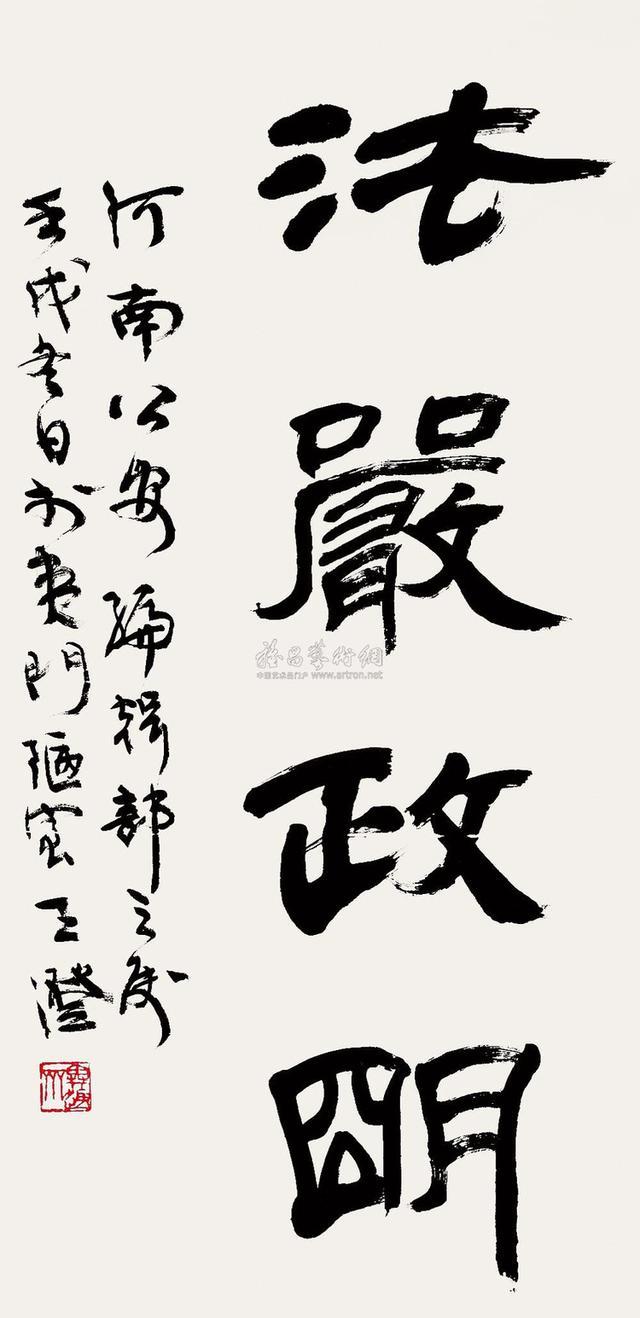 法嚴政朙
河南公安編輯部之属
壬戌冬日於夷門陋室王澄
雅昌藝術網
中国艺术品门户 www.artron.net